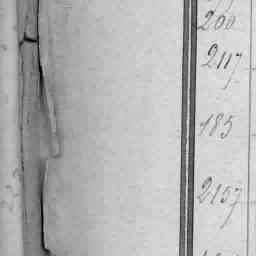 200
2117
185
2157